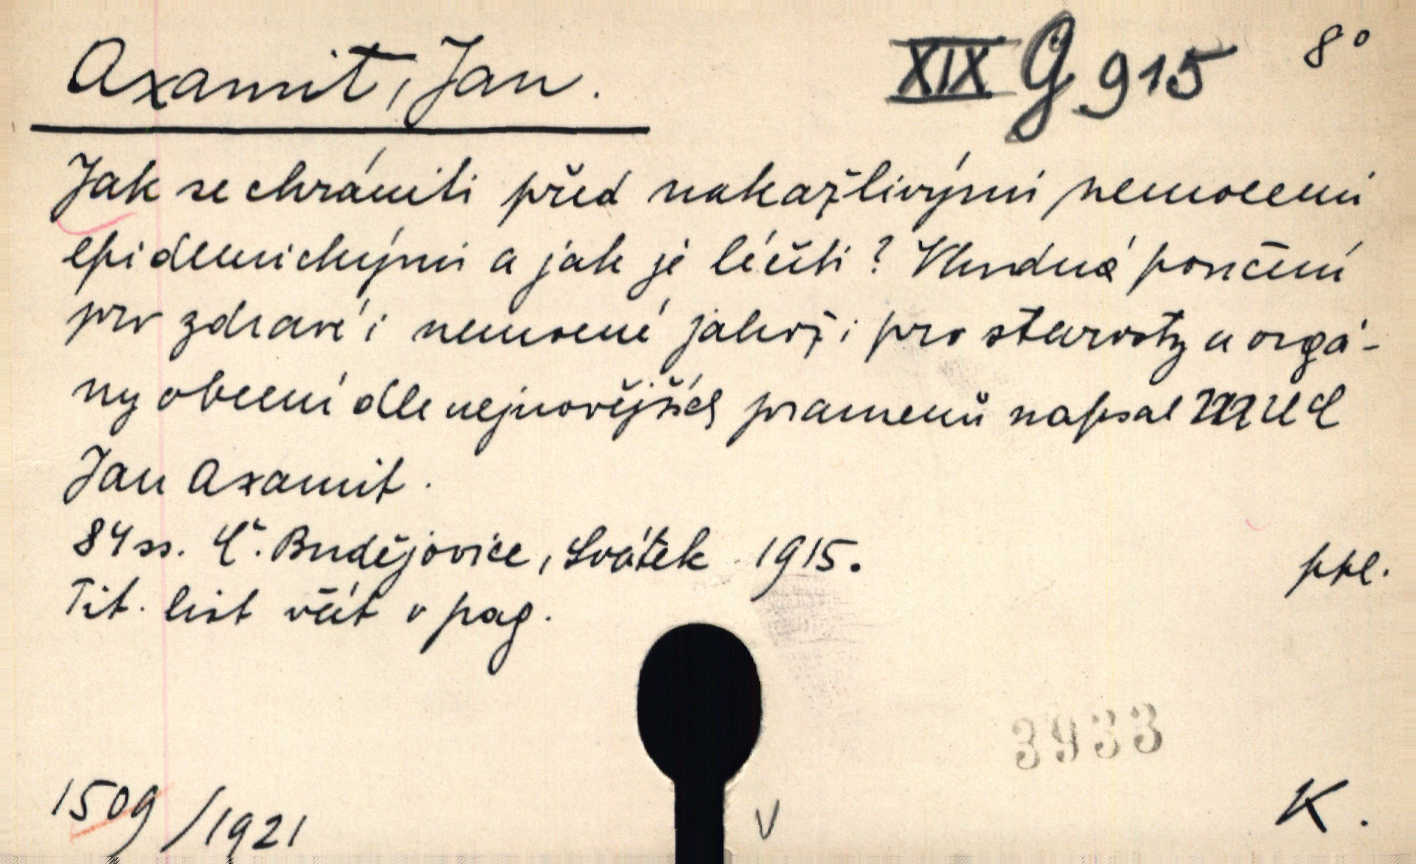 Axamit, Jan.
XIX G 915
8°
Jak se chrániti před nakažlivými nemocemi
epidemickými a jak je léčiti? Vhodná poučení
pro zdravé i nemocné jakož i pro starosty a orgá-
ny obecní dle nejnovějších pramenů napsal MUC
Jan Axamit.
84 ss. Č. Budějovice, Svátek 1915.
ppl.
Tit. list včít v pag.
3933
1509/1921
V
K.